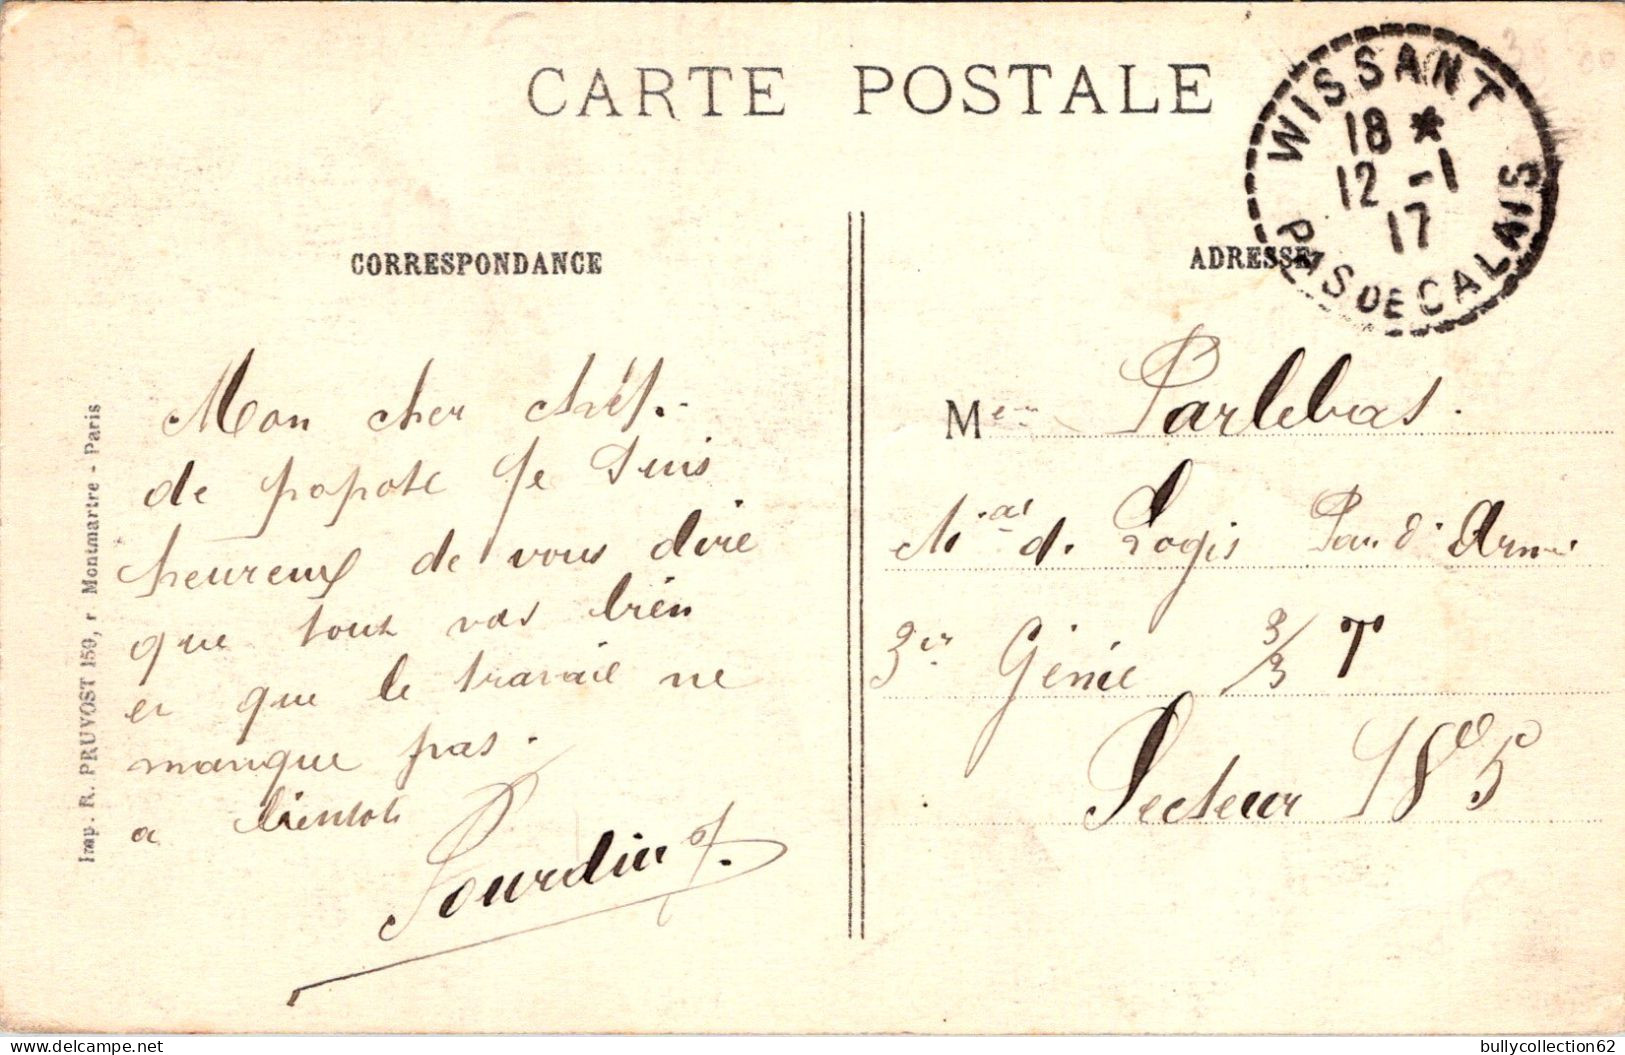 CARTE POSTALE
WISSANT
18 *
12 -1
17
PAS DE CALAIS
CORRESPONDANCE
ADRESSE
Mon cher chef.
de popote Je suis
heureux de vous dire
que tout vas bien
et que le travail ne
manque pas.
a bientot
Parlebas.
d. Logis Parc d'
Génie 3/3 T
Secteur 185
Imp. R. PRUVOST 159, r Montmartre - Paris
bullycollection62